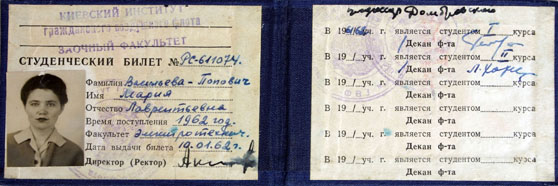 КИЕВСКИЙ ИНСТИТУТ
гражданского воздушного флота
ЗАОЧНЫЙ ФАКУЛЬТЕТ
СТУДЕНЧЕСКИЙ БИЛЕТ № РС-611074
Фамилия Васильева-Попович
Имя Мария
Отчество Лаврентьевна
Время поступления 1962 год.
Факультет Электротехнич.
Дата выдачи билета 19.01.62 г.
Директор (Ректор)
В 1961/62 уч. г. является студентом I курса
Декан ф-та
В 19 / уч. г. является студентом II курса
Декан ф-та
В 19 / уч. г. является студентом курса
Декан ф-та
В 19 / уч. г. является студентом курса
Декан ф-та
В 19 / уч. г. является студентом курса
Декан ф-та
В 19 / уч. г. является студентом курса
Декан ф-та